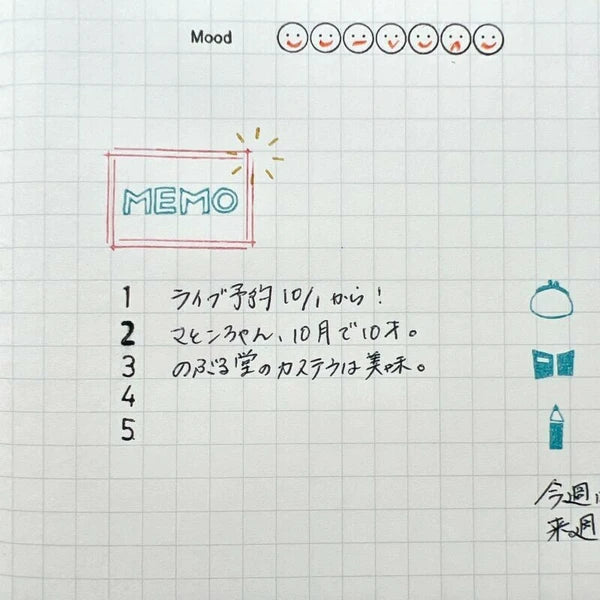 Mood
MEMO
1 ライブ予約 10/1 から!
2 マヒンちゃん、10月で10才。
3 のぶる堂のカステラは美味。
4
5
今週
来週